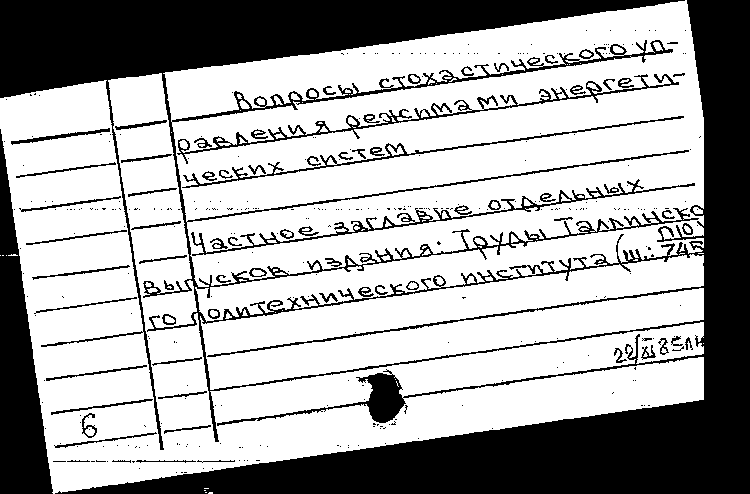 Вопросы стохастического уп-
равления режимами энергети-
ческих систем.
Частное заглавие отдельных
выпусков издания: Труды Таллинско
го политехнического института (ш.: П10 745
22/XI 85
6